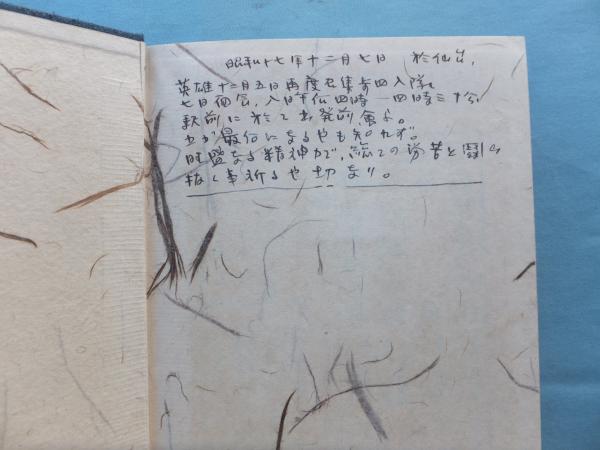 昭和十七年十二月七日 於仙台、
英雄十二月五日再度召集 入隊、
七日 、 四時 四時三十分
駅前に於て出発前會ふ。
之が最后になるやも知れず。
旺盛なる精神力で、総ての労苦と闘ひ
抜く事祈るや切なり。